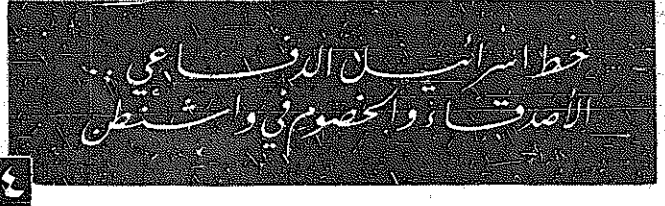 خط اسرائيل الدفاعي ..
الأصدقاء والخصوم في واشنطن
٤